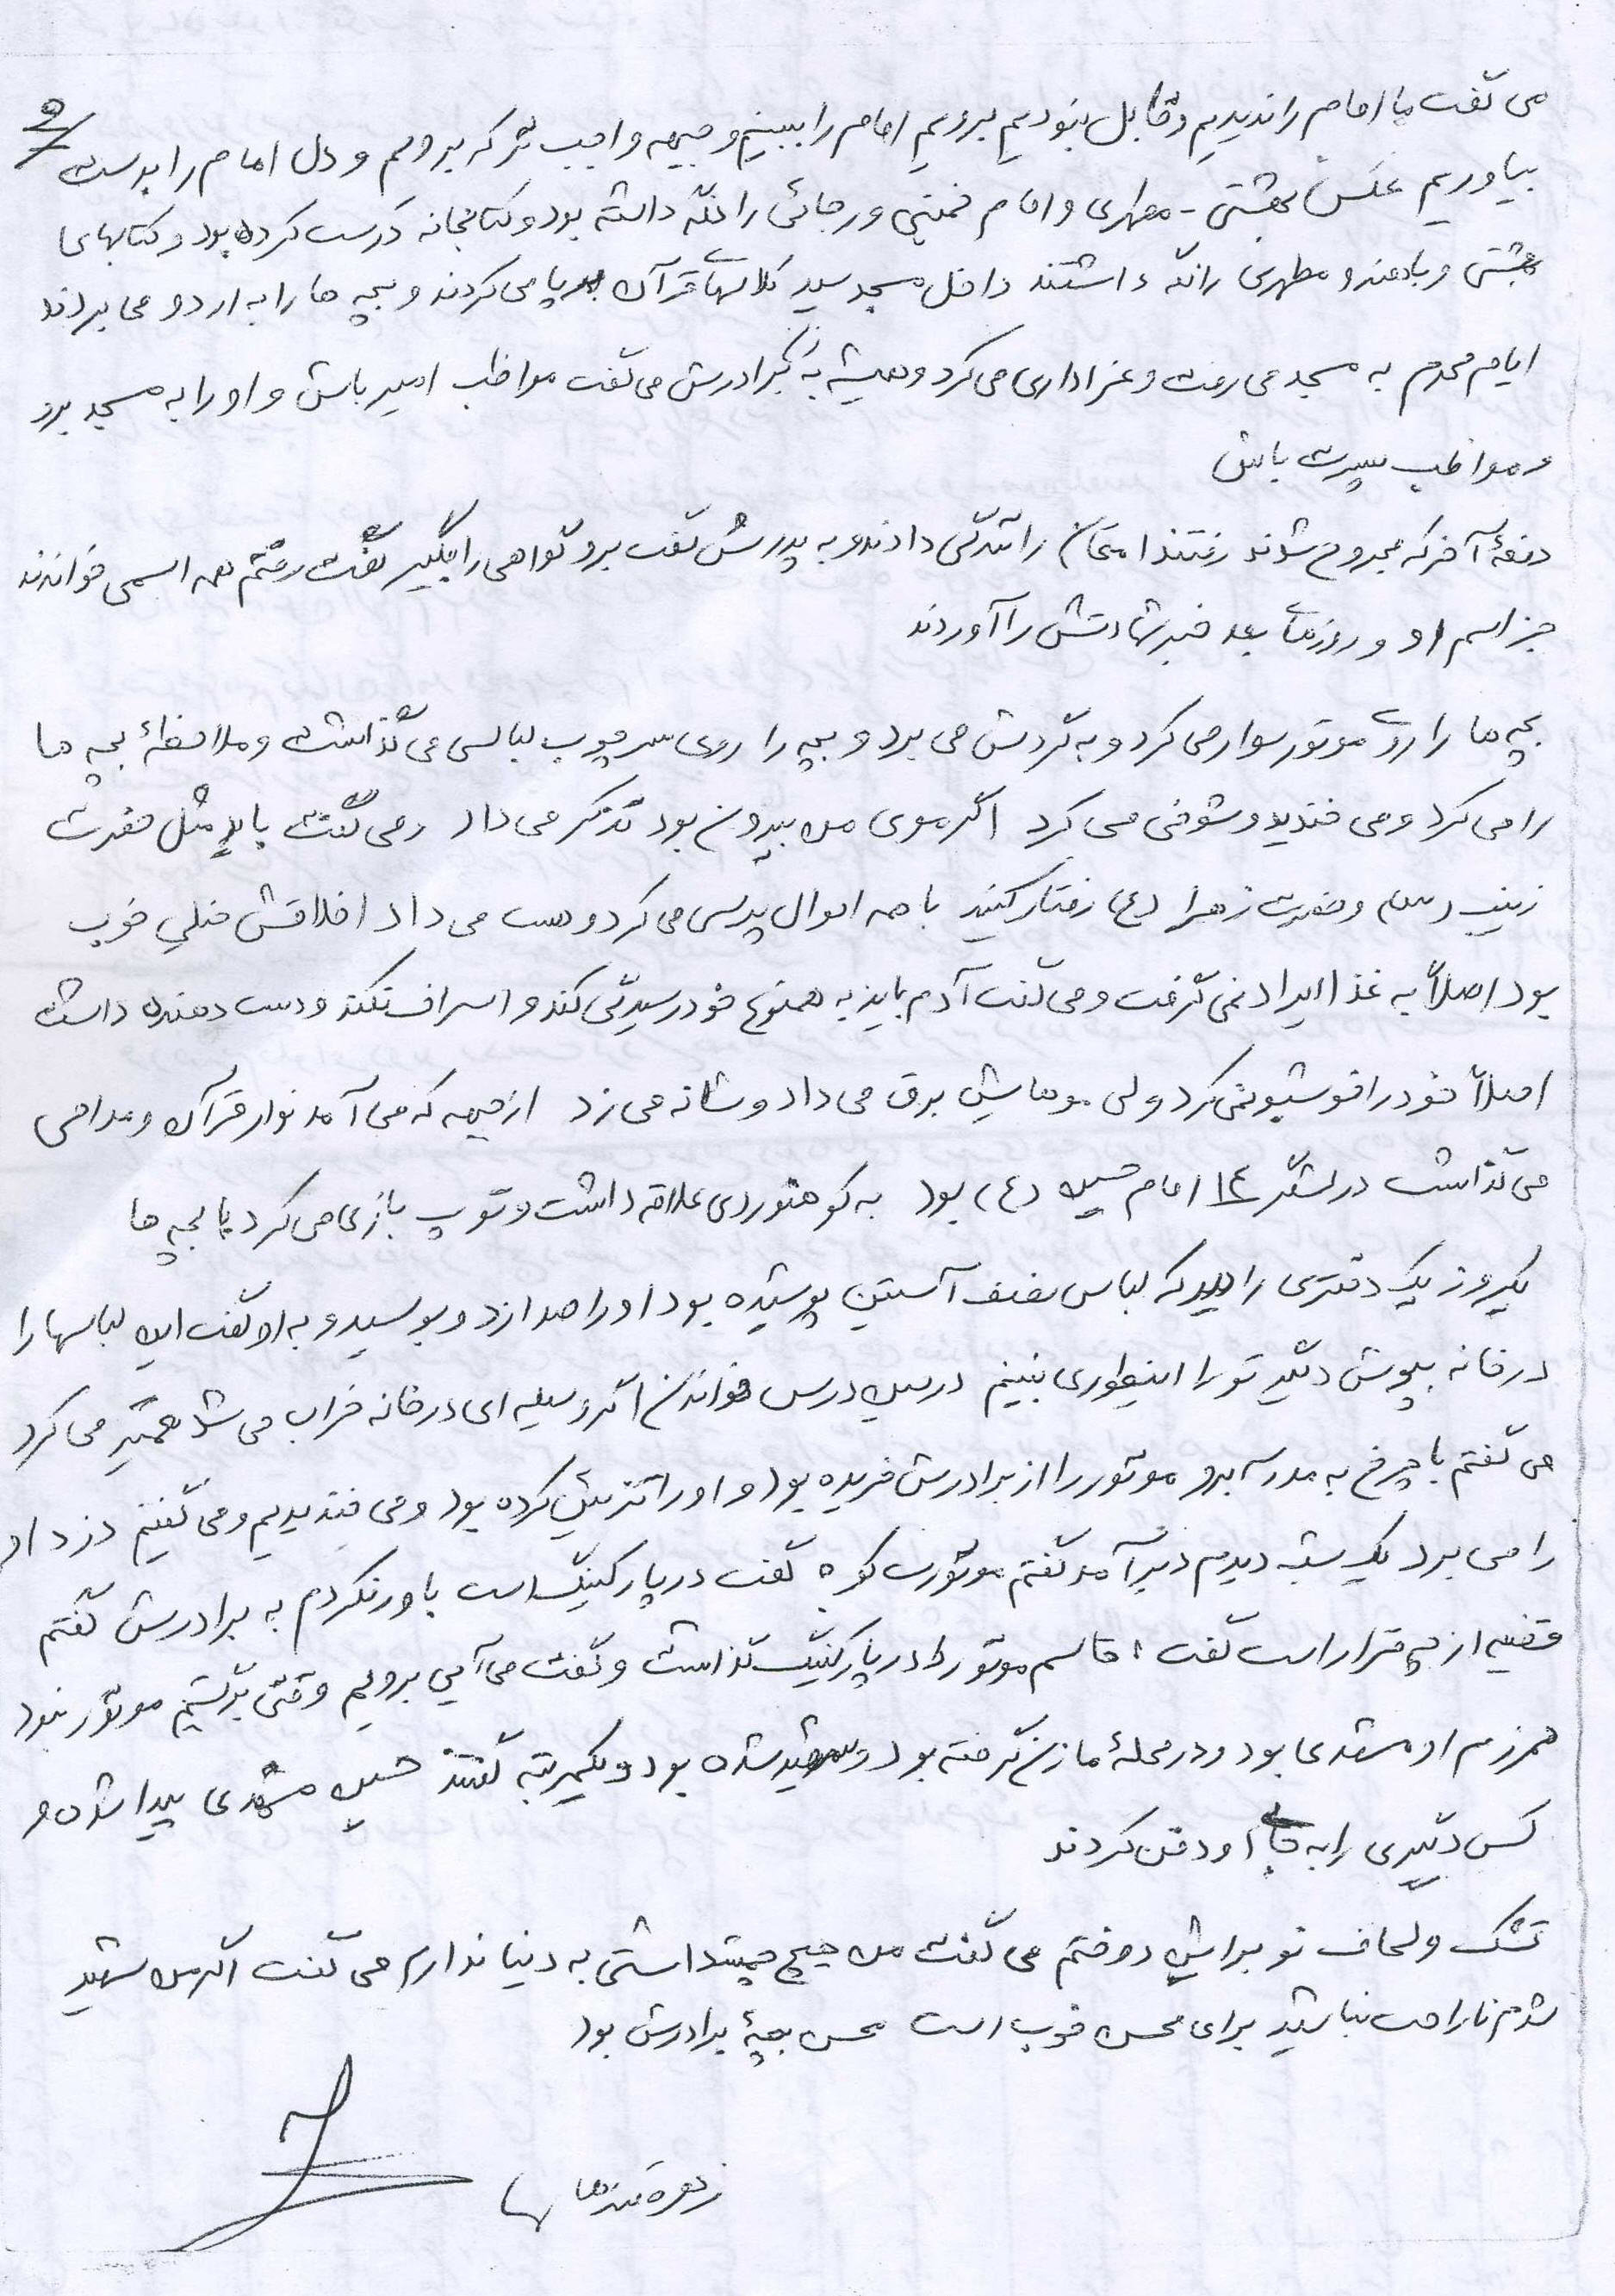 می گفت ما امام را ندیدیم و قابل نبودیم برویم امام را ببینیم و جبهه واجب تر که برویم و دل امام را بدست
بیاوریم عکس بهشتی - مطهری و امام خمینی و رجائی را نگه داشته بود و کتابخانه درست کرده بود و کتابهای
بهشتی و باهنر و مطهری را نگه داشتند داخل مسجد سید کلاسهای قرآن برپا می کردند و بچه ها را به اردو می بردند
ایام محرم به مسجد می رفت و عزاداری می کرد و همیشه به زن برادرش می گفت مواظب امیر باش و او را به مسجد ببرد
و مواظب پسرت باش
دفعۀ آخر که مجروح شدند رفتند امتحان رانندگی دادند و به پدرش گفت برو گواهی را بگیر گفت رفتم همه اسمی خواندند
جز اسم او و روزهای بعد خبر شهادتش را آوردند
بچه ها را روی موتور سوار می کرد و به گردش می برد و بچه را روی سر چوب لباسی می گذاشت و ملاحظۀ بچه ها
را می کرد و می خندید و شوخی می کرد اگر موی من بیرون بود تذکر می داد و می گفت باید مثل حضرت
زینب (س) و حضرت زهرا (ع) رفتار کنید با همه احوال پرسی می کرد و دست می داد اخلاقش خیلی خوب
بود اصلاً به غذا ایراد نمی گرفت و می گفت آدم باید به همنوع خود رسیدگی کند و اسراف نکند و دست دهنده داشت
اصلاً خود را خوشبو نمی کرد ولی موهایش برق می داد و شانه می زد از جبهه که می آمد نوار قرآن و مداحی
می گذاشت در لشگر ۱۴ امام حسین (ع) بود به کوهنوردی علاقه داشت و توپ بازی می کرد با بچه ها
یکروز یک دختری را دید که لباس نصف آستین پوشیده بود او را صدا زد و بوسید و به او گفت این لباسها را
در خانه بپوش دیگر تو را اینطوری نبینم در بین درس خواندن اگر وسیله ای در خانه خراب می شد تعمیر می کرد
می گفتم با چرخ به مدرسه برو موتور را از برادرش خریده بود و او را تزئین کرده بود و می خندیدیم و می گفتیم دزد او
را می برد یک شب دیدم دیر آمد گفتم موتورت کو؟ گفت در پارکینگ است باور نکردم به برادرش گفتم
قضیه از چه قرار است گفت: قاسم موتور را در پارکینگ گذاشت و گفت می آیی برویم وقتی برگشتیم موتور نبود
همرزم او مشهدی بود و در محلۀ ما زن گرفته بود و شهید شده بود و یکمرتبه گفتند حسین مشهدی پیدا شده و
کس دیگری را به جای او دفن کردند
تشک و لحاف نو برایش دوختم می گفت من هیچ چشمداشتی به دنیا ندارم می گفت اگر من شهید
شدم ناراحت نباشید برای محسن خوب است محسن بچۀ برادرش بود